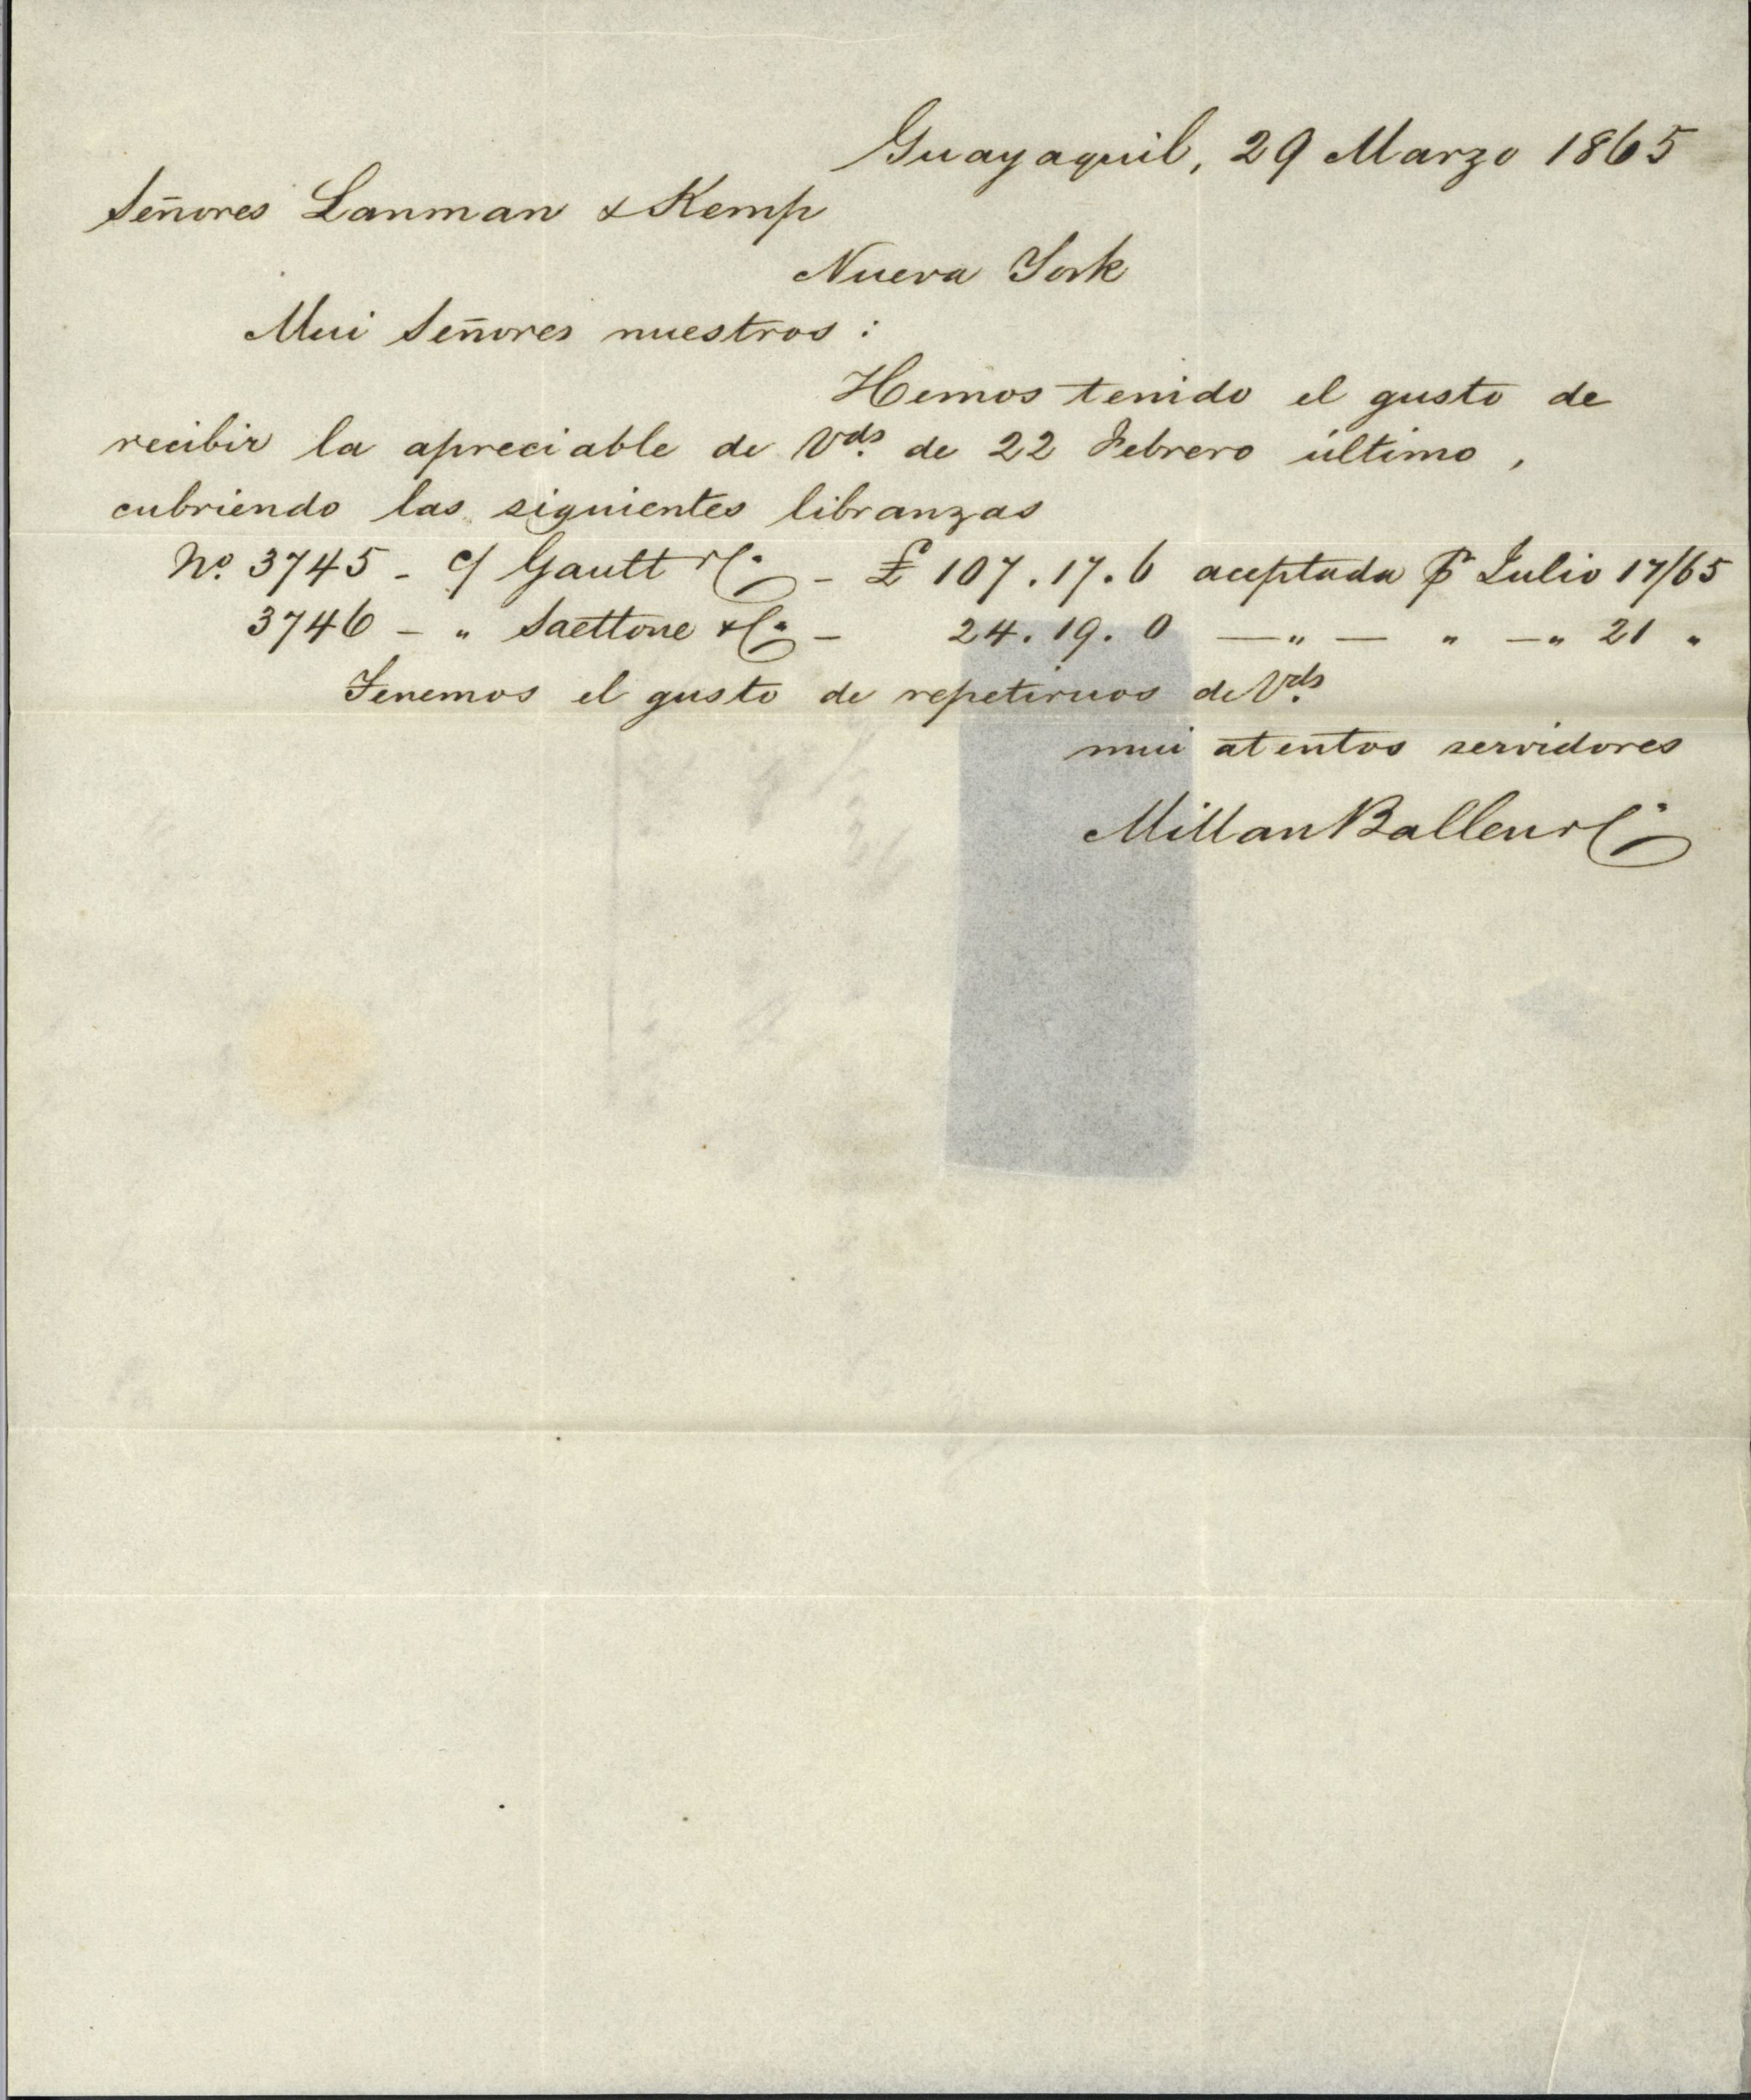 Guayaquil, 29 Marzo 1865
Señores Lanman & Kemp
Nueva York
Mui Señores nuestros:
Hemos tenido el gusto de
recibir la apreciable de Vds. de 22 Febrero último,
cubriendo las siguientes libranzas
No. 3745 - c/ Gautt & Ca. - £ 107.17.6 aceptada pr Julio 17/65
3746 - " Saettone & Ca. - 24.19.0 —"— " —" 21 "
Tenemos el gusto de repetirnos de Vds.
mui atentos servidores
Millan Ballen & Ca.